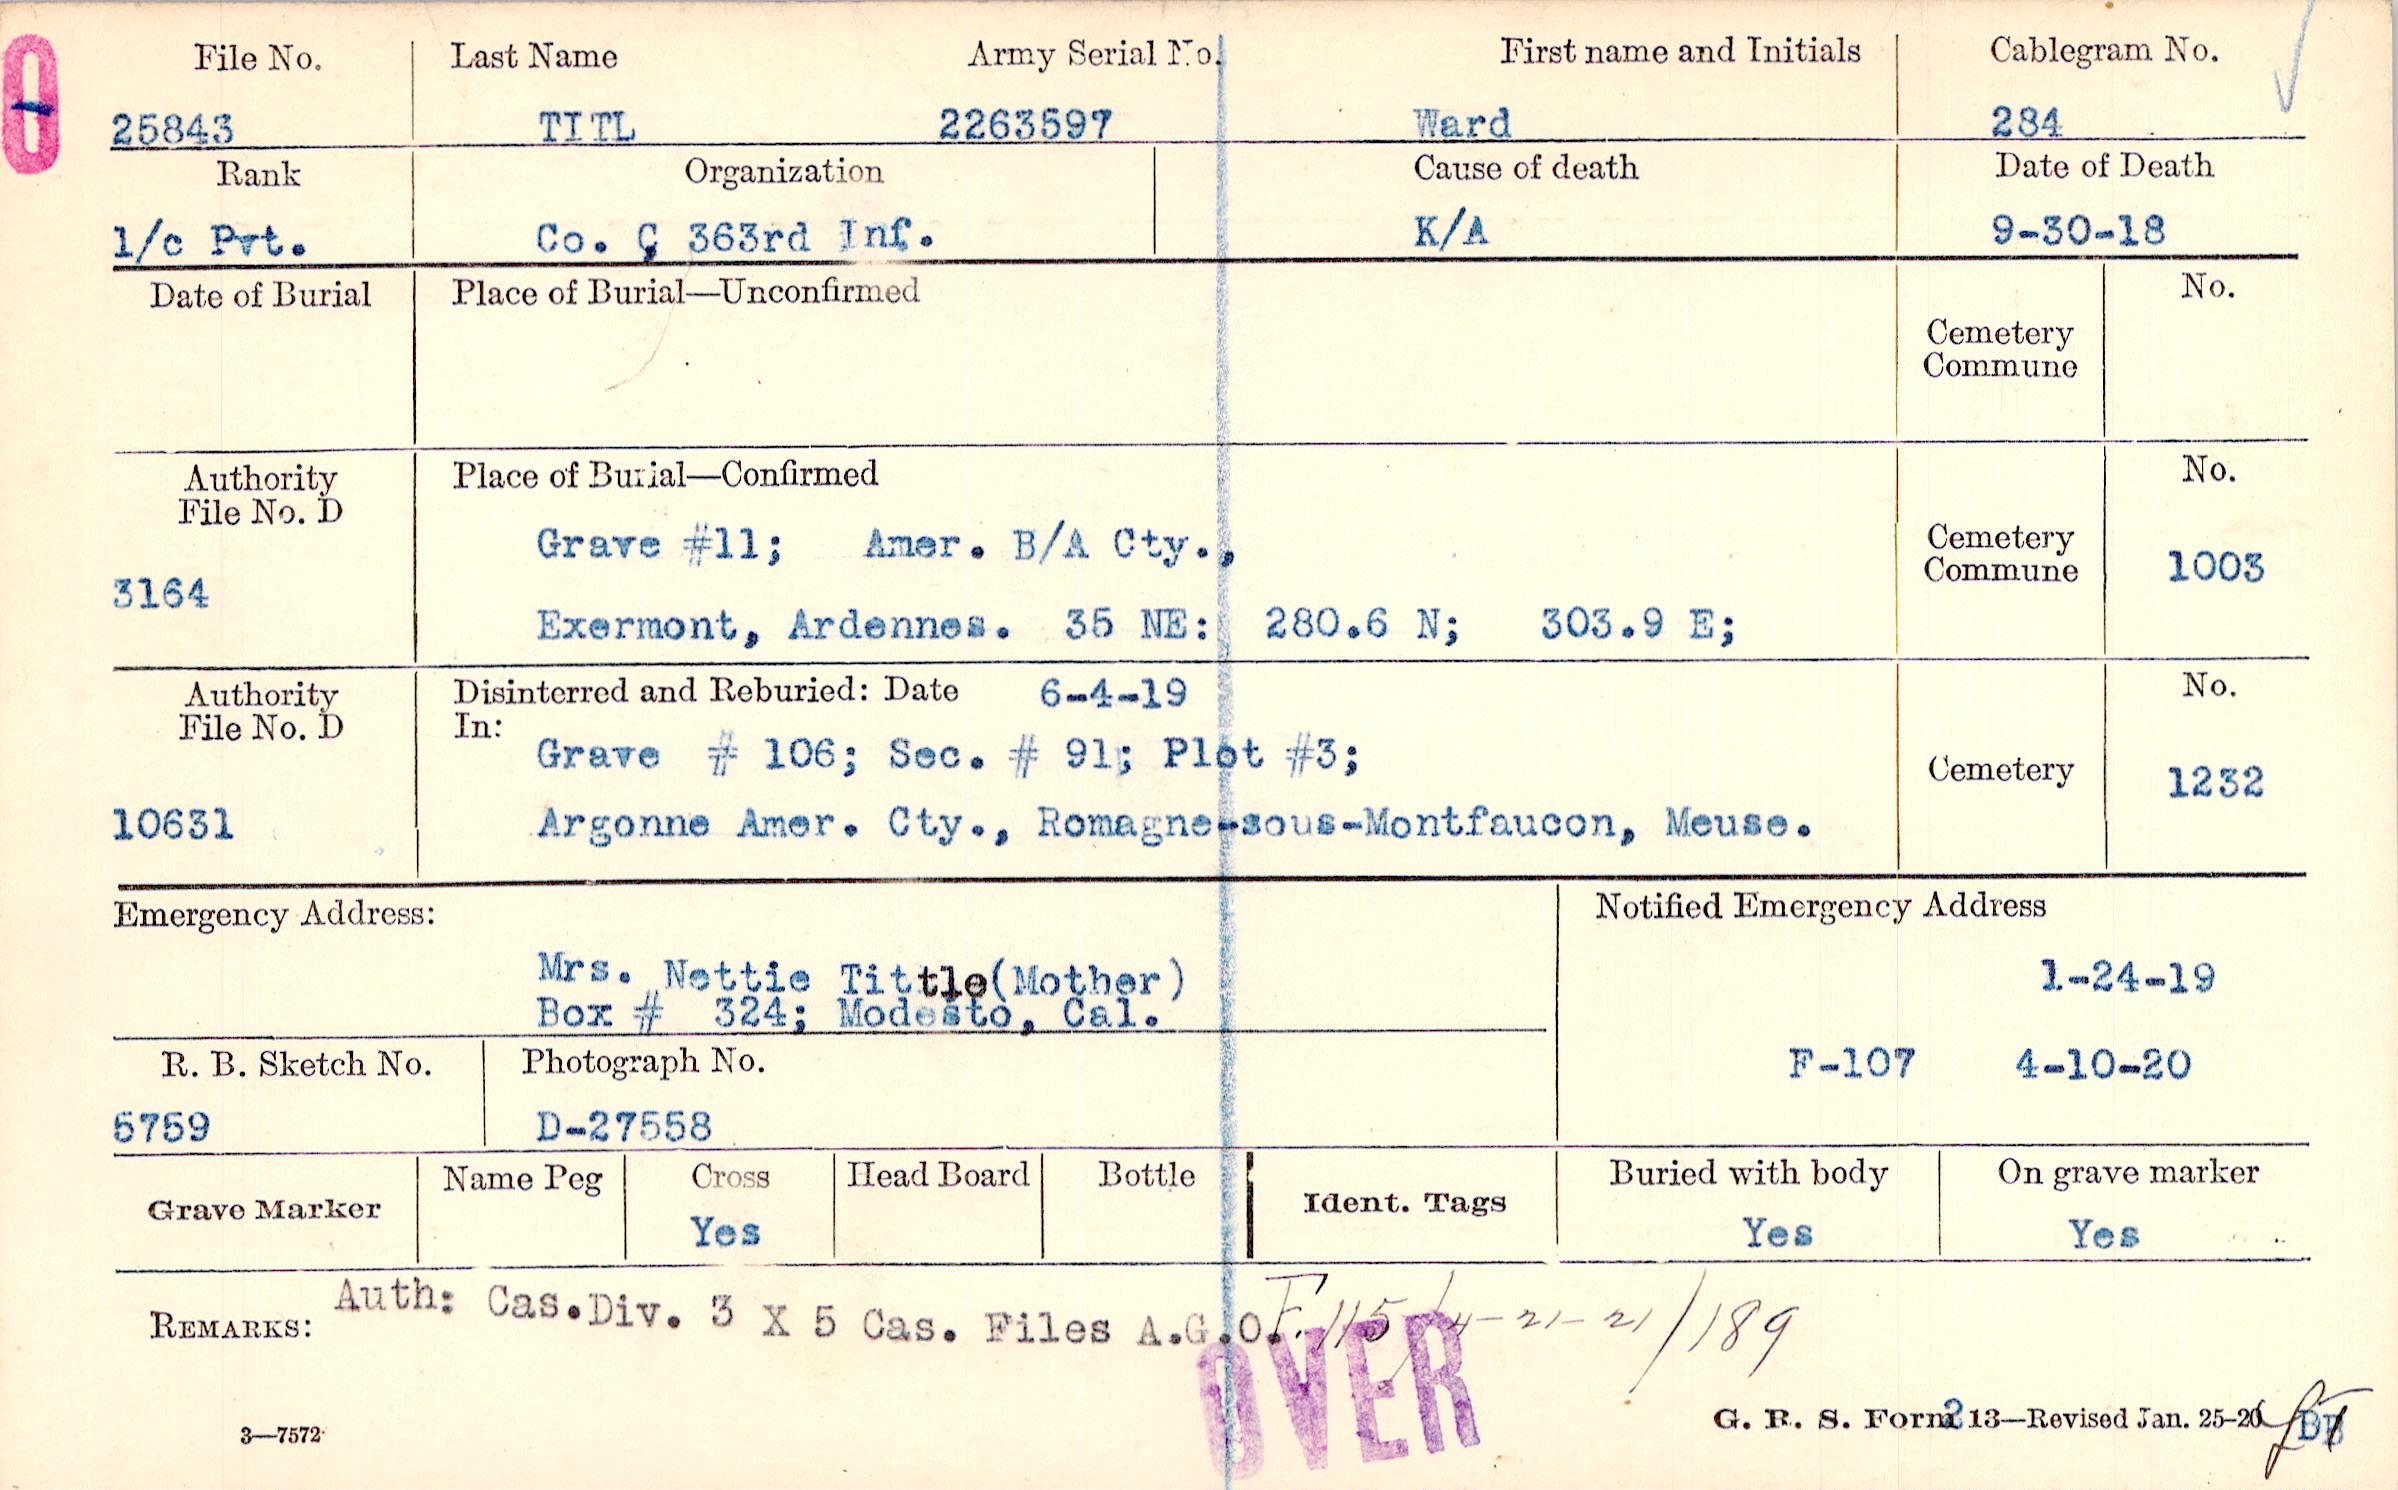 File No. Last Name Army Serial No. First name and Initials Cablegram No.
25843 TITL 2263597 Ward 284
Rank Organization Cause of death Date of Death
1/c Pvt. Co. C, 363rd Inf. K/A 9-30-18
Date of Burial Place of Burial—Unconfirmed No.
Cemetery
Commune
Authority Place of Burial—Confirmed No.
File No. D
Grave #11; Amer. B/A Cty., Cemetery
Commune 1003
3164
Exermont, Ardennes. 35 NE: 280.6 N; 303.9 E;
Authority Disinterred and Reburied: Date 6-4-19 No.
File No. D In:
Grave # 106; Sec. # 91; Plot #3; Cemetery 1232
10631 Argonne Amer. Cty., Romagne-sous-Montfaucon, Meuse.
Emergency Address: Notified Emergency Address
Mrs. Nettie Tittle(Mother) 1-24-19
Box # 324; Modesto, Cal.
R. B. Sketch No. Photograph No. F-107 4-10-20
5759 D-27558
Grave Marker Name Peg Cross Head Board Bottle Ident. Tags Buried with body On grave marker
Yes Yes Yes
REMARKS: Auth: Cas.Div. 3 X 5 Cas. Files A.G.O. F. 115/4-21-21/189
OVER
3—7572 G. R. S. Form 13—Revised Jan. 25-20